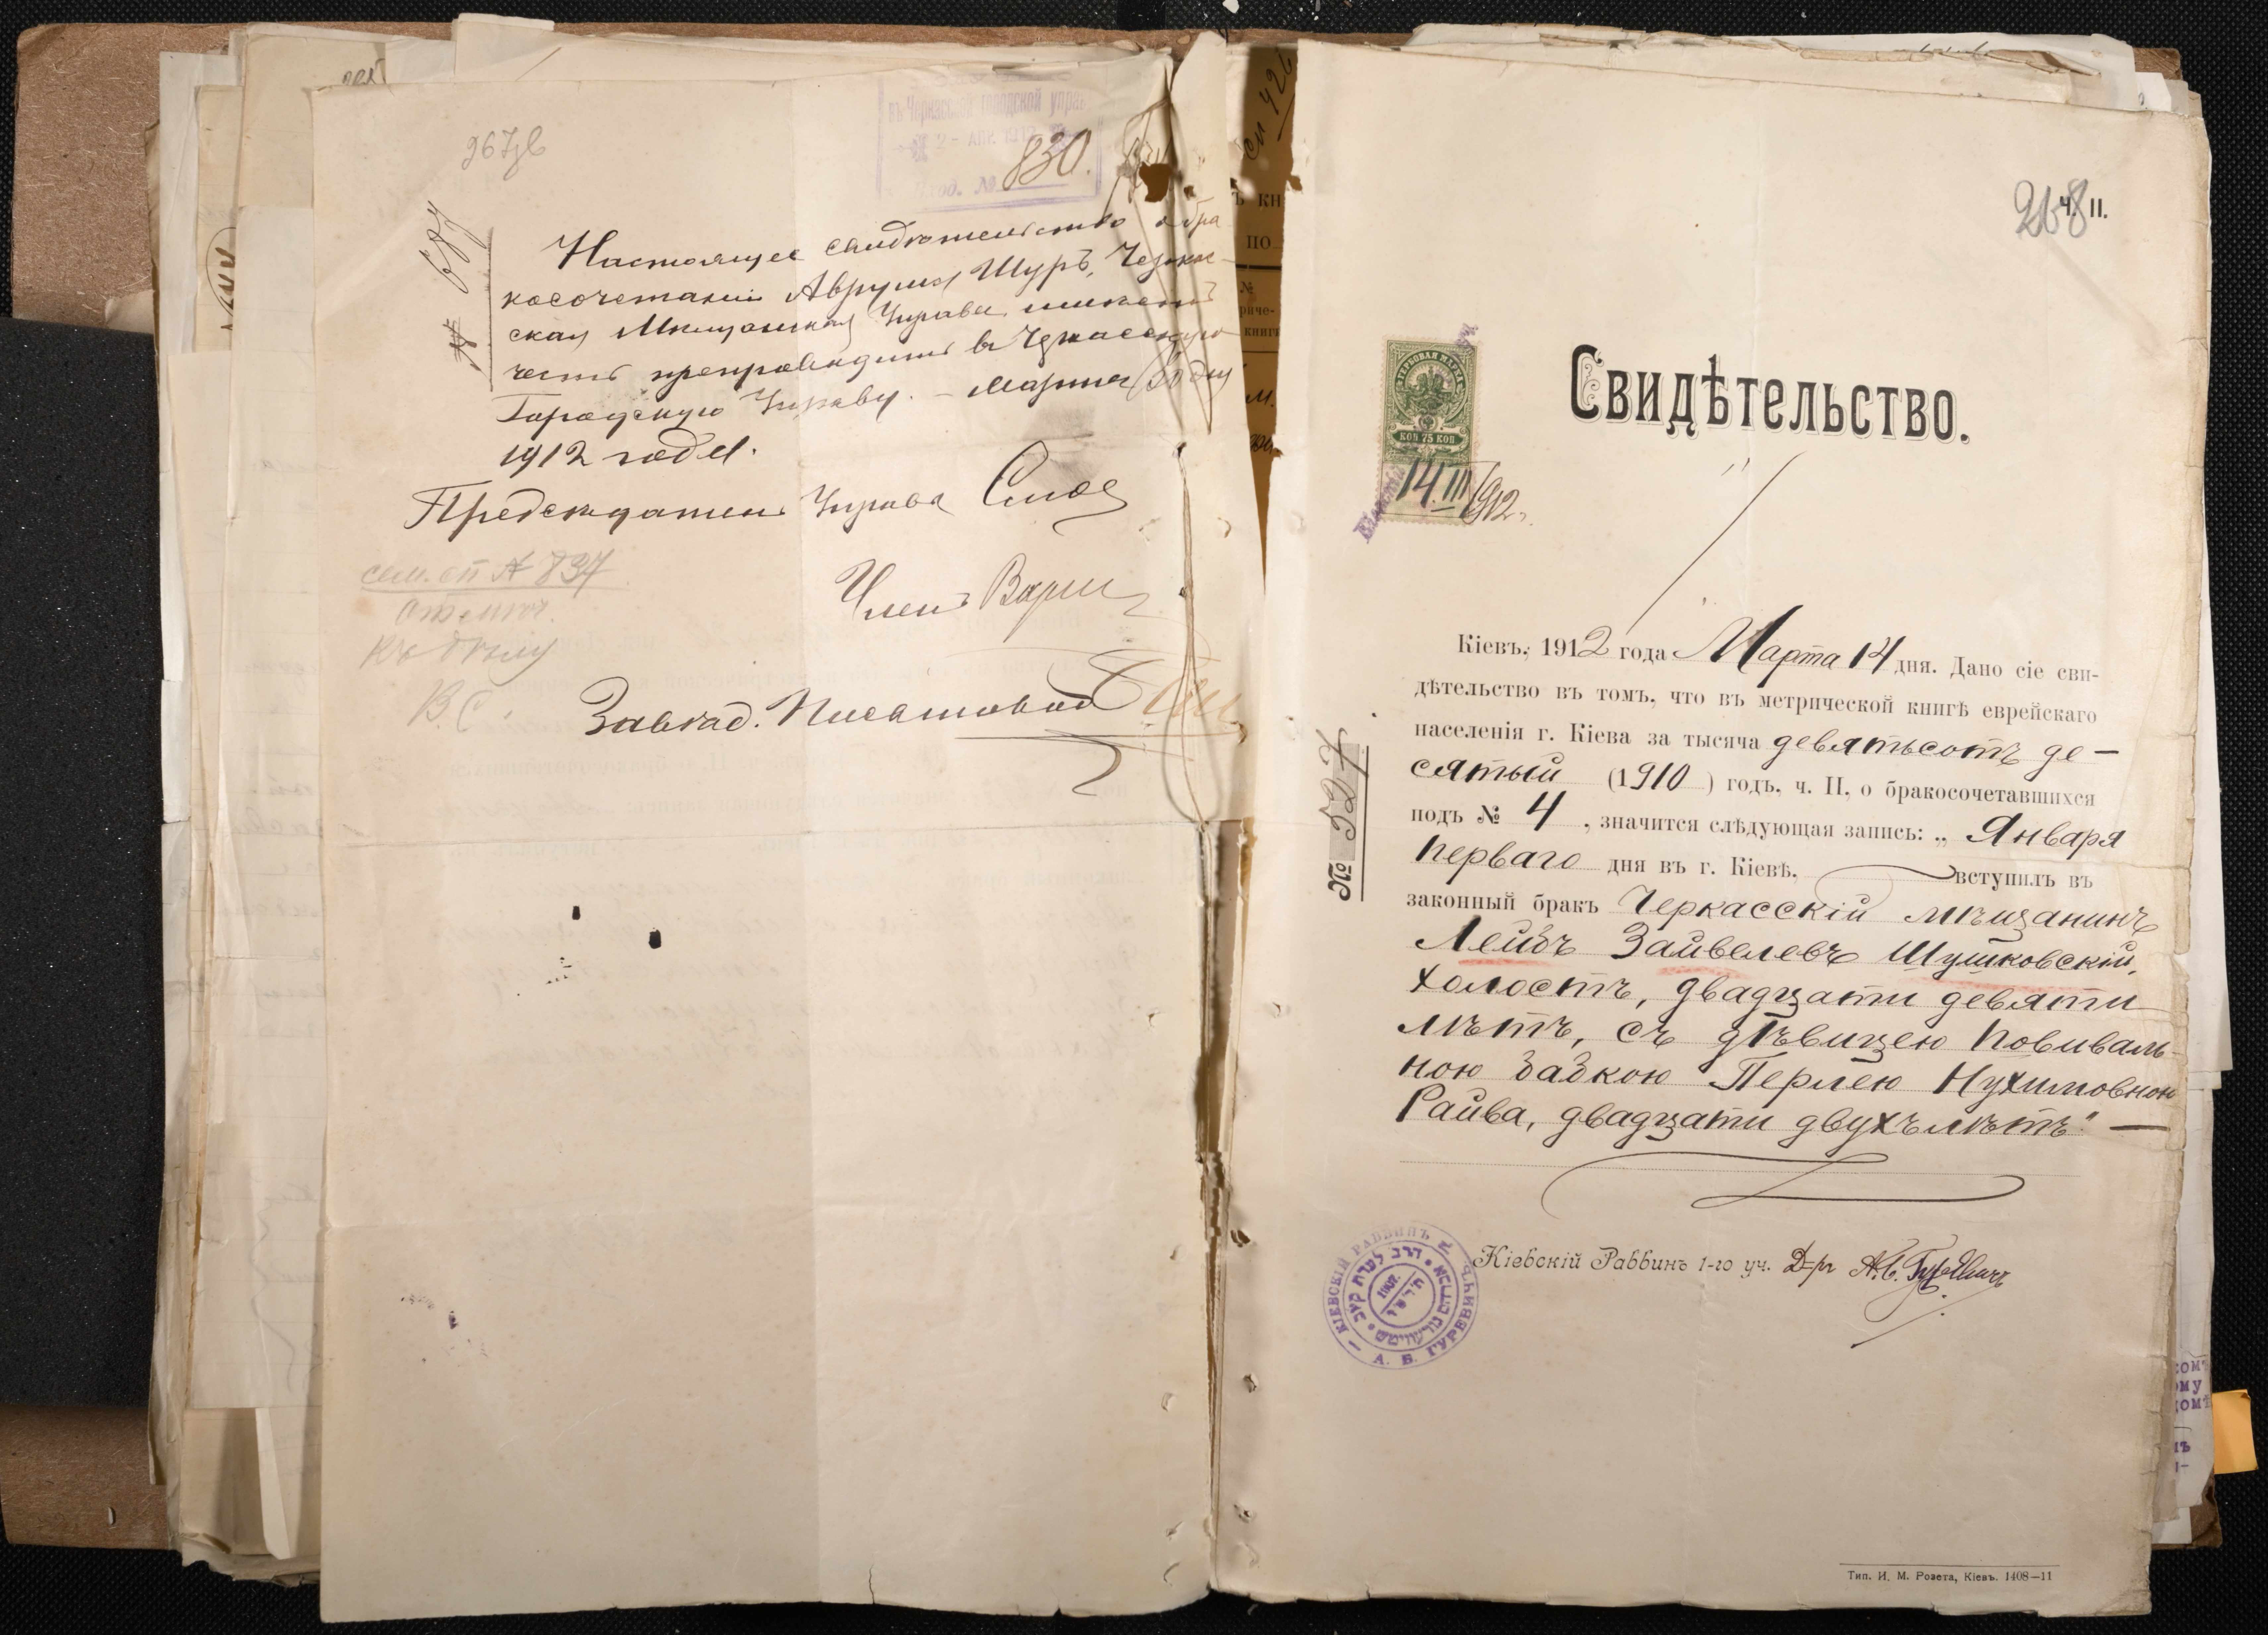 267об
въ Черкасской городской управ
2 - АПР. 1912
Вход. № 830.
№ 687
Настоящее свидѣтельство о бра
косочетаніи Аврума Шуръ, Черкас-
ская Мѣщанская Управа имѣетъ
честь препроводить въ Черкасскую
Городскую Управу. – Марта 30 дня
1912 года.
Предсѣдатель Управы
Членъ
Завѣд. Письмовод
сем. сп № 837
отмѣч.
къ дѣлу
В. С.
268
Ч. II.
ГЕРБОВАЯ МАРКА
КОП 75 КОП
14.III 1912 г.
Свидѣтельство.
№ 527
Кіевъ, 1912 года Марта 14 дня. Дано сіе сви-
дѣтельство въ томъ, что въ метрической книгѣ еврейскаго
населенія г. Кіева за тысяча девятьсотъ де–
сятый (1910) годъ, ч. II, о бракосочетавшихся
подъ № 4, значится слѣдующая запись: „Января
перваго дня въ г. Кіевѣ, вступилъ въ
законный бракъ Черкасскій мѣщанинъ
Лейбъ Зайвелевъ Шушковскій,
холостъ, двадцати девяти
лѣтъ, съ дѣвицею повиваль-
ною бабкою Перлею Нухимовною
Райва, двадцати двухъ лѣтъ" —
Кіевскій Раввинъ 1-го уч. Д-ръ А. Б. Гуревичъ
КІЕВСКІЙ РАВВИНЪ
А. Б. ГУРЕВИЧЪ
הרב לעדת קיוב
1907.
Тип. И. М. Розета, Кіевъ. 1408—11